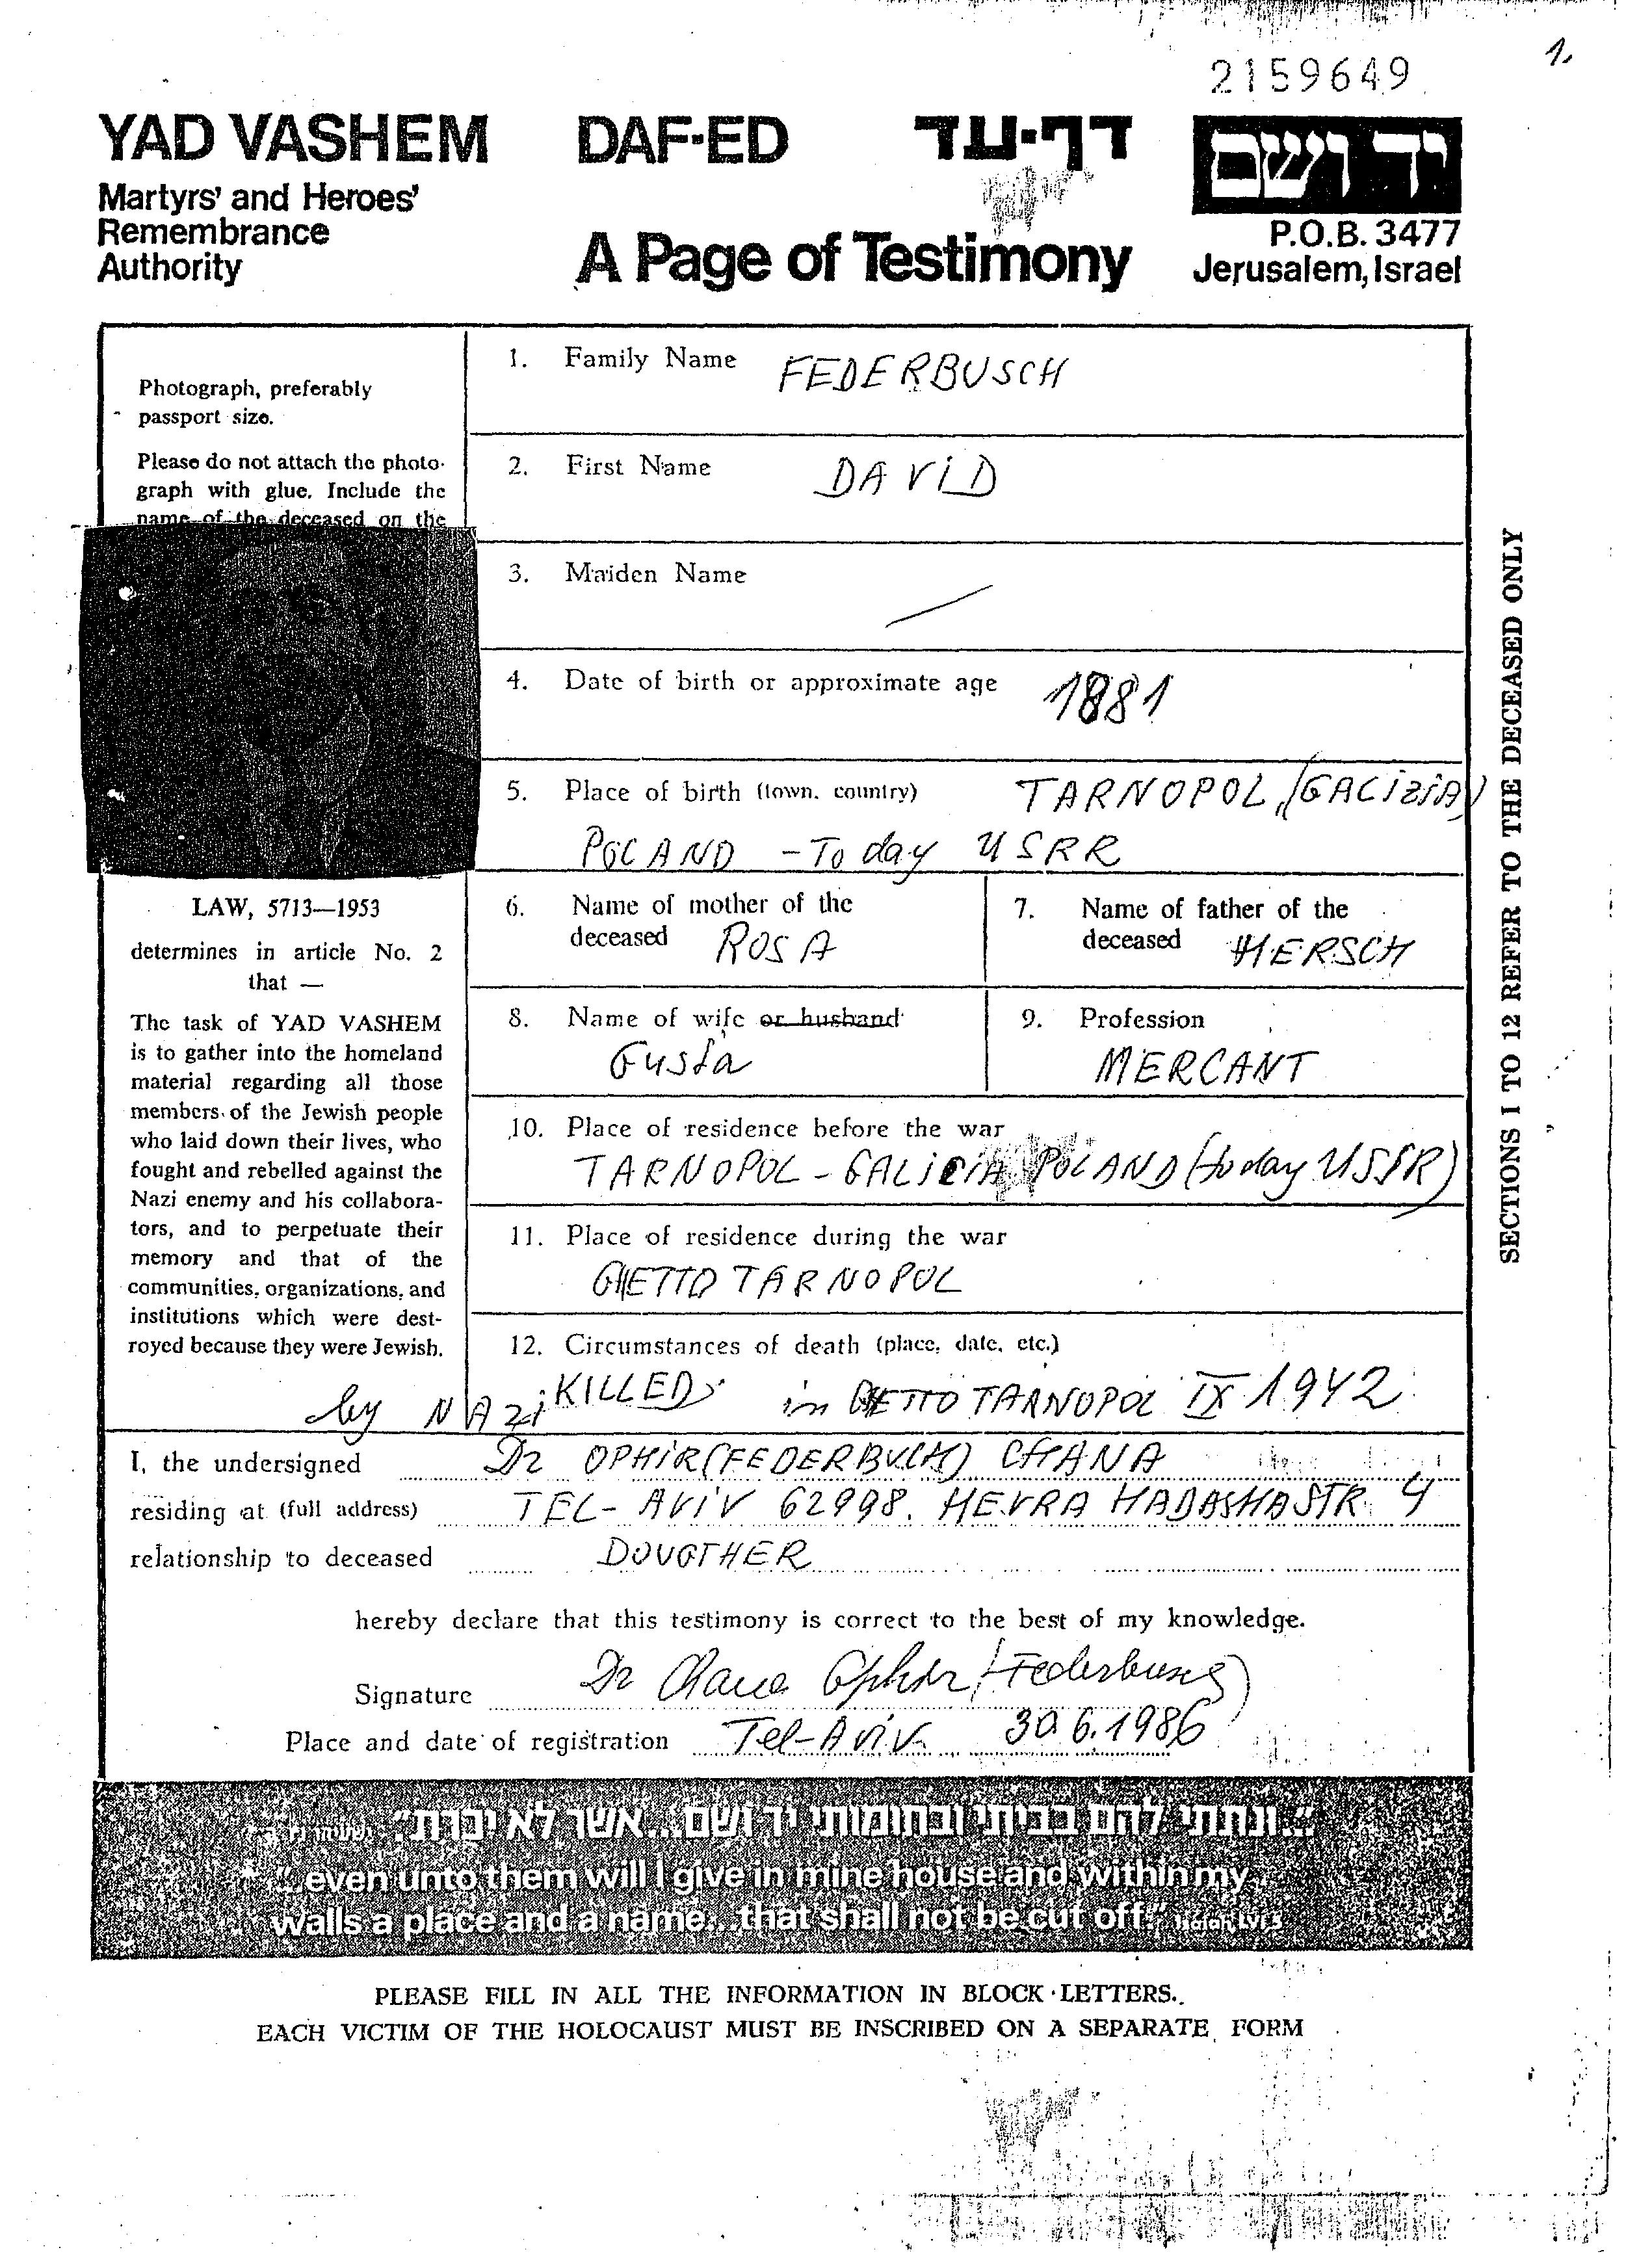 1.
2159649
YAD VASHEM DAF-ED דף-עד יד ושם
Martyrs' and Heroes'
Remembrance
Authority
A Page of Testimony
P.O.B. 3477
Jerusalem, Israel
Photograph, preferably
passport size.
Please do not attach the photo-
graph with glue. Include the
name of the deceased on the
LAW, 5713—1953
determines in article No. 2
that —
The task of YAD VASHEM
is to gather into the homeland
material regarding all those
members of the Jewish people
who laid down their lives, who
fought and rebelled against the
Nazi enemy and his collabora-
tors, and to perpetuate their
memory and that of the
communities, organizations, and
institutions which were dest-
royed because they were Jewish.
1. Family Name FEDERBUSCH
2. First Name DAViD
3. Maiden Name
4. Date of birth or approximate age 1881
5. Place of birth (town, country) TARNOPOL, (GALiZiA)
POLAND - Today USRR
6. Name of mother of the
deceased ROSA
7. Name of father of the
deceased HERSCH
8. Name of wife or husband
Gusta
9. Profession
MERCANT
10. Place of residence before the war
TARNOPOL - GALiCiA POLAND (today USSR)
11. Place of residence during the war
GHETTO TARNOPOL
12. Circumstances of death (place, date, etc.)
by NAZi KILLED in GHETTO TARNOPOL IX 1942
SECTIONS 1 TO 12 REFER TO THE DECEASED ONLY
I, the undersigned Dr OPHiR (FEDERBUSCH) CHANA
residing at (full address) TEL-AViV 62998. HEVRA HADASHA STR. 4
relationship to deceased DOUGTHER
hereby declare that this testimony is correct to the best of my knowledge.
Signature Dr Chana Ophir (Federbusch)
Place and date of registration Tel-AViV. 30.6.1986
"...ונתתי להם בביתי ובחומותי יד ושם...אשר לא יכרת"
"...even unto them will I give in mine house and within my
walls a place and a name...that shall not be cut off." Isaiah LVI 5
PLEASE FILL IN ALL THE INFORMATION IN BLOCK LETTERS.
EACH VICTIM OF THE HOLOCAUST MUST BE INSCRIBED ON A SEPARATE FORM